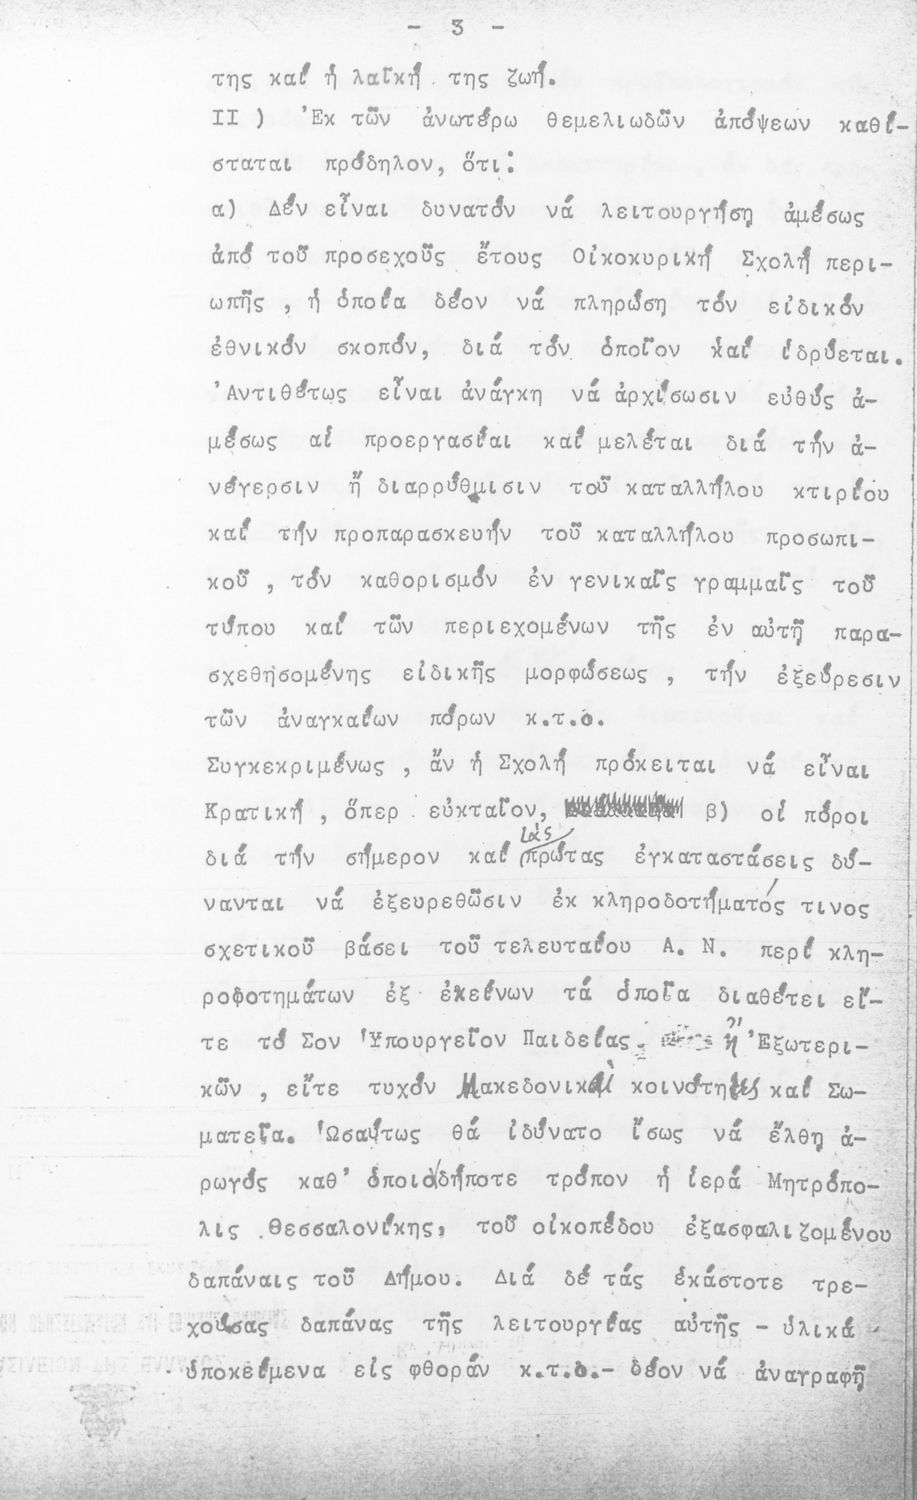 - 3 -
της καί ἡ λαϊκή της ζωή.
II ) Ἐκ τῶν ἀνωτέρω θεμελιωδῶν ἀπόψεων καθί-
σταται πρόδηλον, ὅτι:
α) Δέν εἶναι δυνατόν νά λειτουργήσῃ ἀμέσως
ἀπό τοῦ προσεχοῦς ἔτους Οἰκοκυρική Σχολή περι-
ωπῆς , ἡ ὁποία δέον νά πληρώσῃ τόν εἰδικόν
ἐθνικόν σκοπόν, διά τόν ὁποῖον καί ἱδρύεται.
Ἀντιθέτως εἶναι ἀνάγκη νά ἀρχίσωσιν εὐθύς ἀ-
μέσως αἱ προεργασίαι καί μελέται διά τήν ἀ-
νέγερσιν ἤ διαρρύθμισιν τοῦ καταλλήλου κτιρίου
καί τήν προπαρασκευήν τοῦ καταλλήλου προσωπι-
κοῦ , τόν καθορισμόν ἐν γενικαῖς γραμμαῖς τοῦ
τύπου καί τῶν περιεχομένων τῆς ἐν αὐτῇ παρα-
σχεθησομένης εἰδικῆς μορφώσεως , τήν ἐξεύρεσιν
τῶν ἀναγκαίων πόρων κ.τ.ὁ.
Συγκεκριμένως , ἄν ἡ Σχολή πρόκειται νά εἶναι
Κρατική , ὅπερ εὐκταῖον, β) οἱ πόροι
διά τήν σήμερον καί τάς πρώτας ἐγκαταστάσεις δύ-
νανται νά ἐξευρεθῶσιν ἐκ κληροδοτήματός τινος
σχετικοῦ βάσει τοῦ τελευταίου Α. Ν. περί κλη-
ροδοτημάτων ἐξ ἐκείνων τά ὁποῖα διαθέτει εἴ-
τε τό Σον Ὑπουργεῖον Παιδείας ἤ Ἐξωτερι-
κῶν , εἴτε τυχόν Μακεδονικαί κοινότητες καί Σω-
ματεῖα. Ὡσαύτως θά ἐδύνατο ἴσως νά ἔλθῃ ἀ-
ρωγός καθ' ὁποιοδήποτε τρόπον ἡ ἱερά Μητρόπο-
λις Θεσσαλονίκης, τοῦ οἰκοπέδου ἐξασφαλιζομένου
δαπάναις τοῦ Δήμου. Διά δέ τάς ἑκάστοτε τρε-
χούσας δαπάνας τῆς λειτουργίας αὐτῆς - ὑλικά
ὑποκείμενα εἰς φθοράν κ.τ.ὁ.- δέον νά ἀναγραφῇ